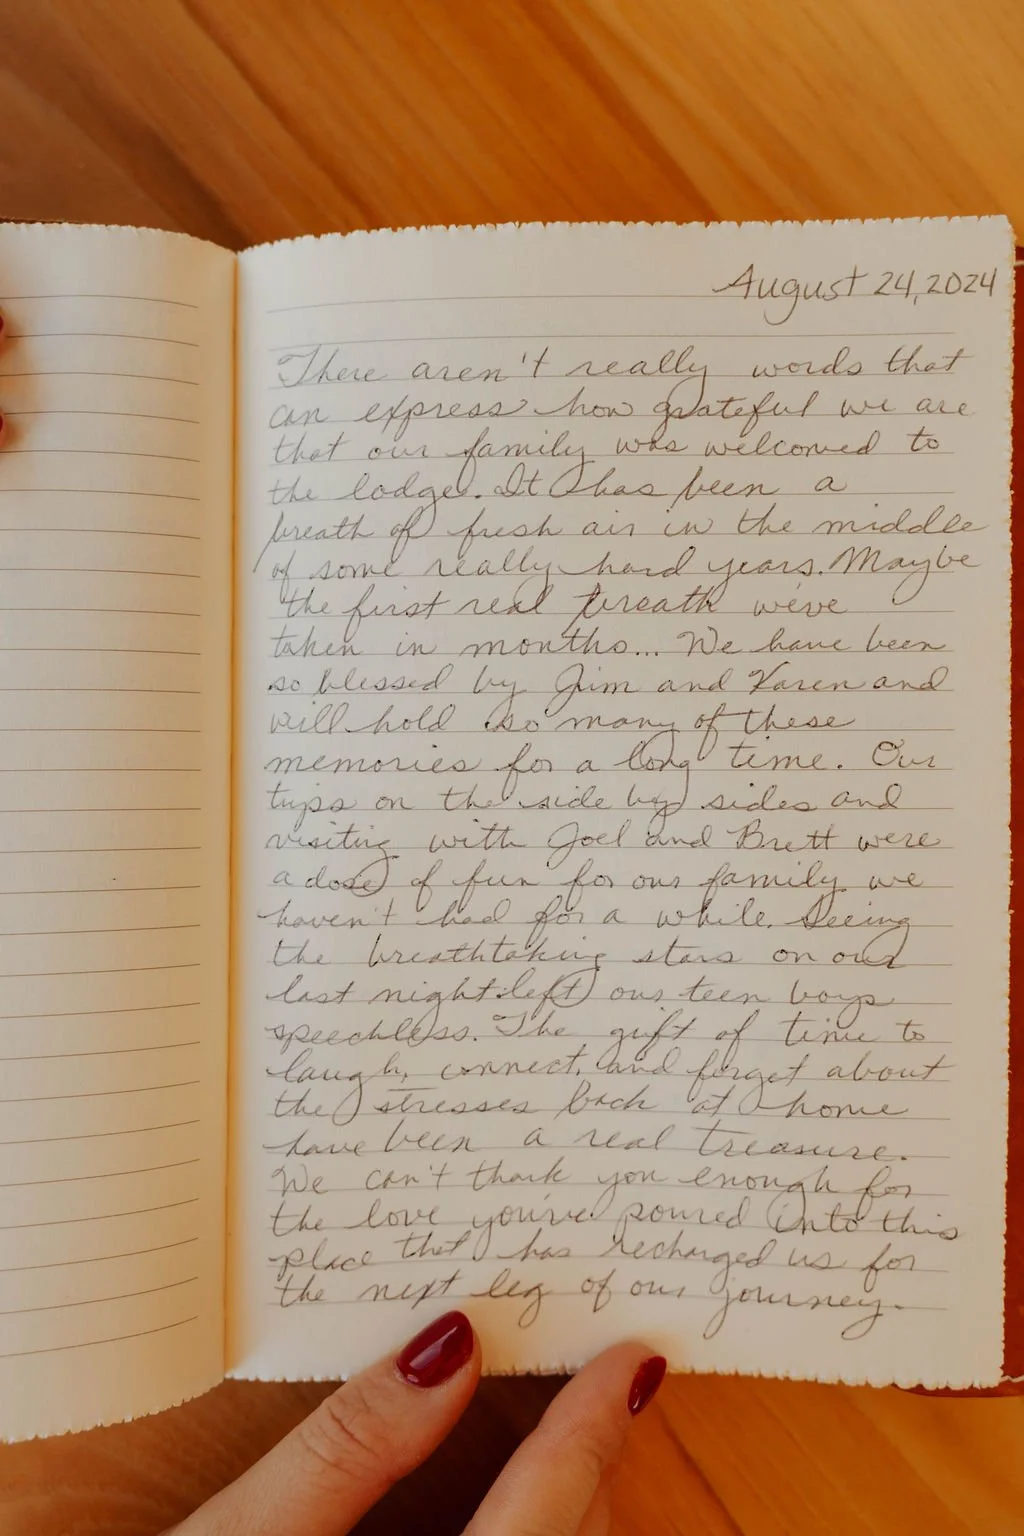 August 24, 2024
There aren't really words that
can express how grateful we are
that our family was welcomed to
the lodge. It has been a
breath of fresh air in the middle
of some really hard years. Maybe
the first real breath we've
taken in months... We have been
so blessed by Jim and Karen and
will hold so many of these
memories for a long time. Our
trips on the side by sides and
visiting with Joel and Brett were
a dose of fun for our family we
haven't had for a while. Seeing
the breathtaking stars on our
last night left our teen boys
speechless. The gift of time to
laugh, connect, and forget about
the stresses back at home
have been a real treasure.
We can't thank you enough for
the love you've poured into this
place that has recharged us for
the next leg of our journey.